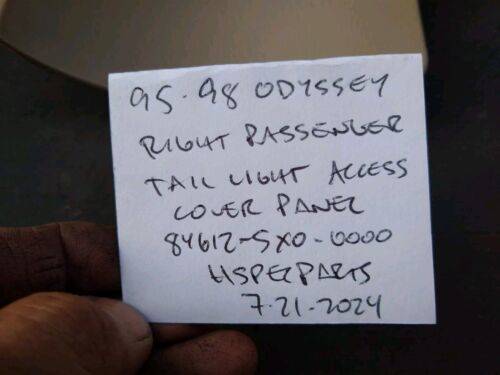 95-98 ODYSSEY
RIGHT PASSENGER
TAIL LIGHT ACCESS
COVER PANEL
84612-SX0-0000
HSPEZPARTS
7-21-2024